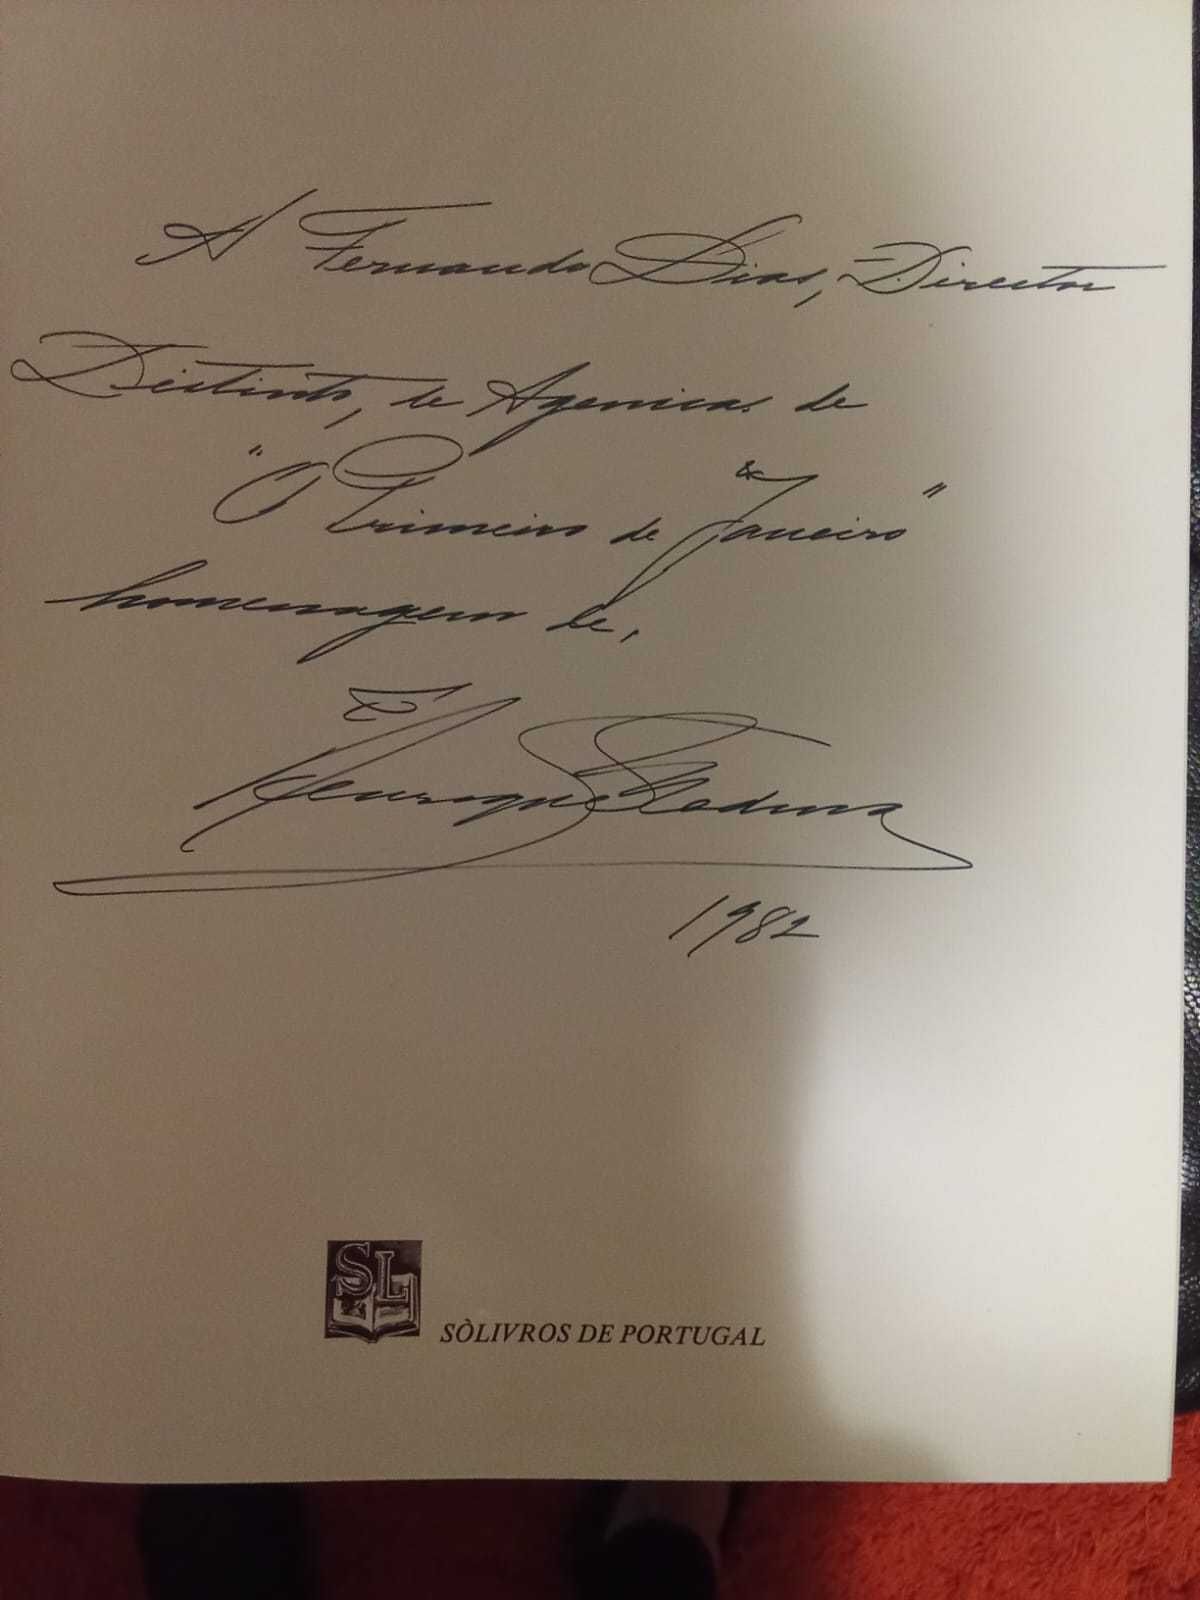 A Fernando Dias, Director
Distinto, de Agencias de
"O Primeiro de Janeiro"
homenagem de,
Henrique
1982
SL
SÒLIVROS DE PORTUGAL